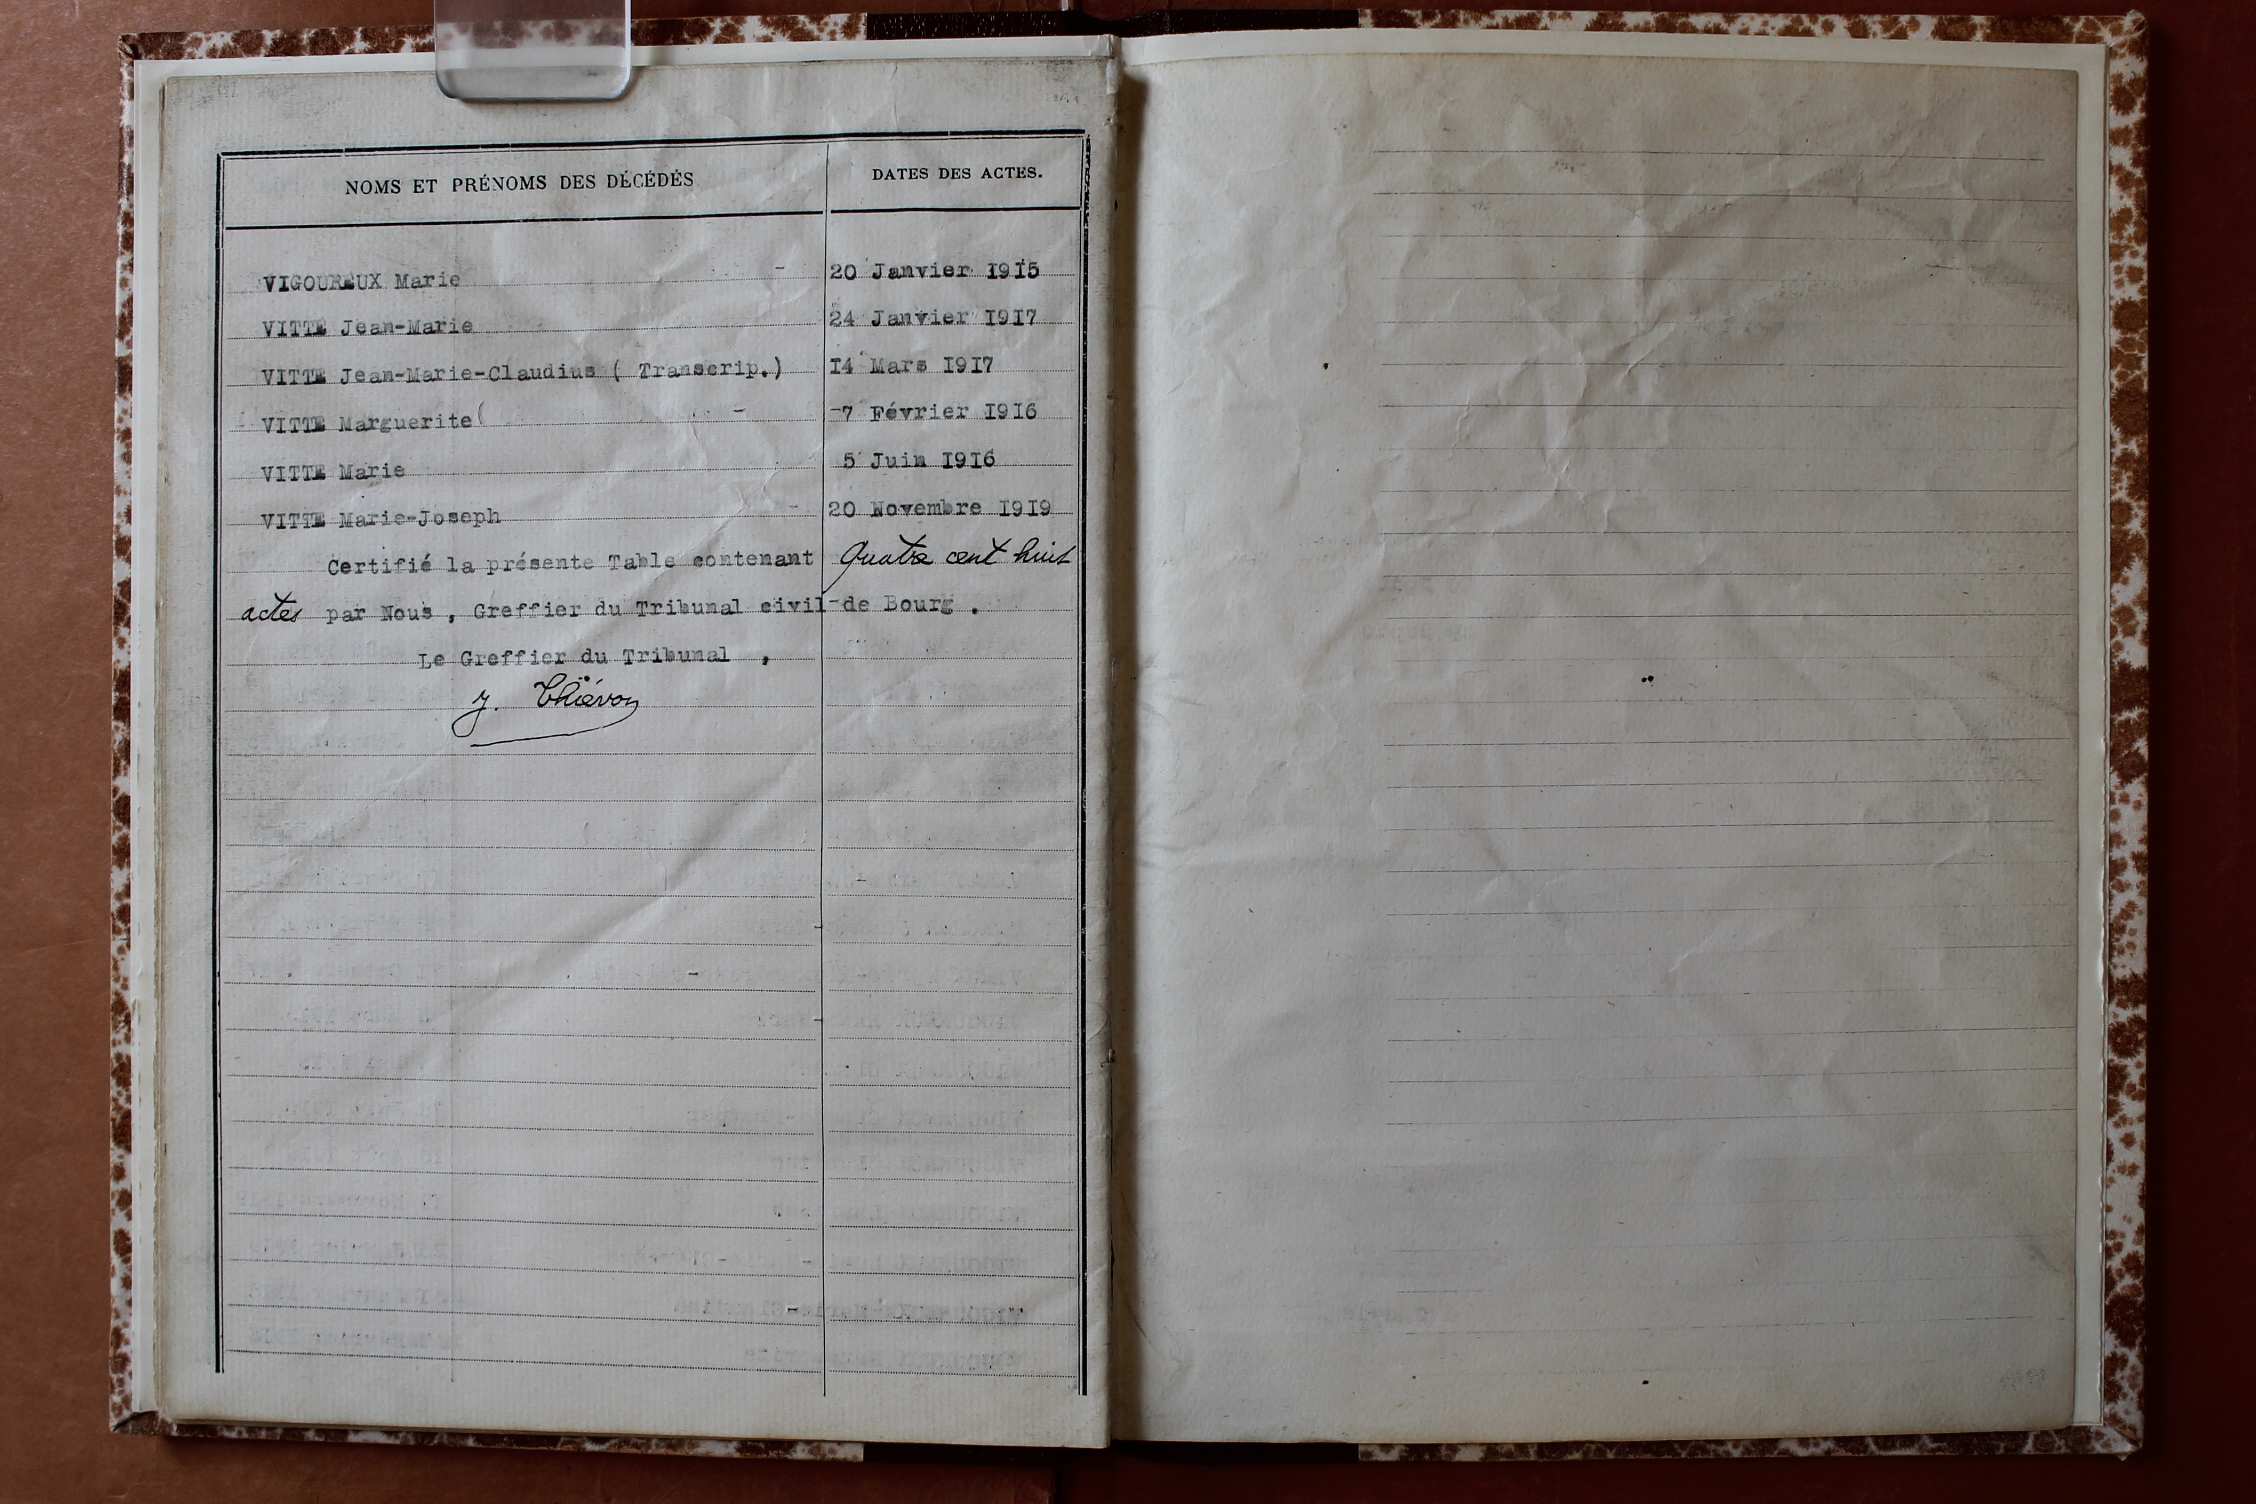 NOMS ET PRÉNOMS DES DÉCÉDÉS DATES DES ACTES.
VIGOUREUX Marie - 20 Janvier 1915
VITTE Jean-Marie 24 Janvier 1917
VITTE Jean-Marie-Claudius ( Transcrip.) 14 Mars 1917
VITTE Marguerite( - -7 Février 1916
VITTE Marie 5 Juin 1916
VITTE Marie-Joseph - 20 Novembre 1919
Certifié la présente Table contenant Quatre cent huit
actes par Nous , Greffier du Tribunal civil-de Bourg .
Le Greffier du Tribunal ,
J. Thiévon